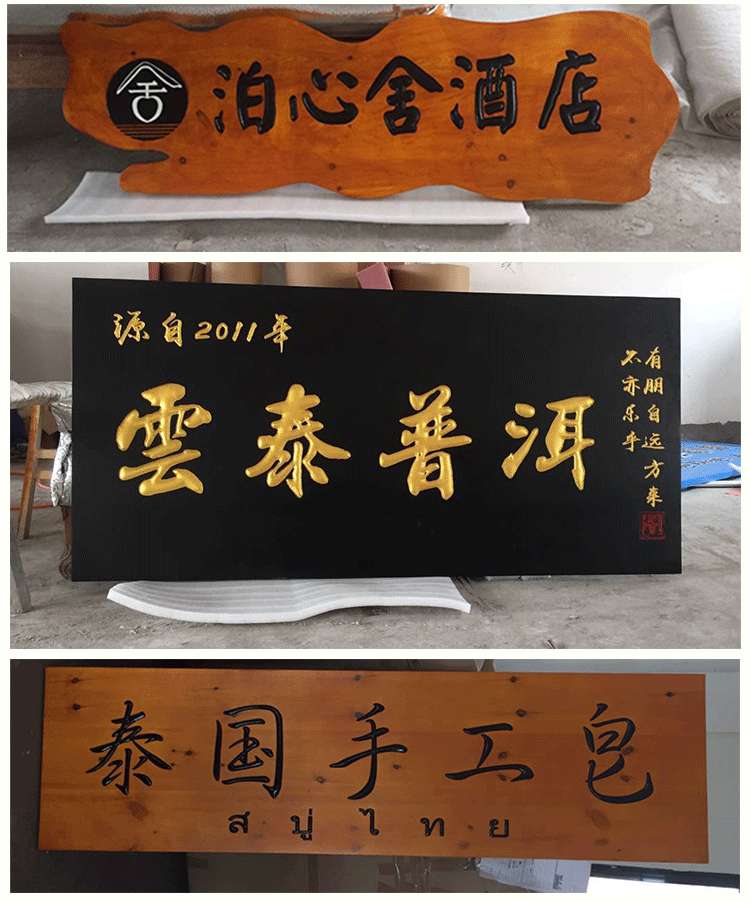 舍
泊心舍酒店
源自2011年
雲泰普洱
有朋自远方来
不亦乐乎
泰国手工皂
สบู่ไทย